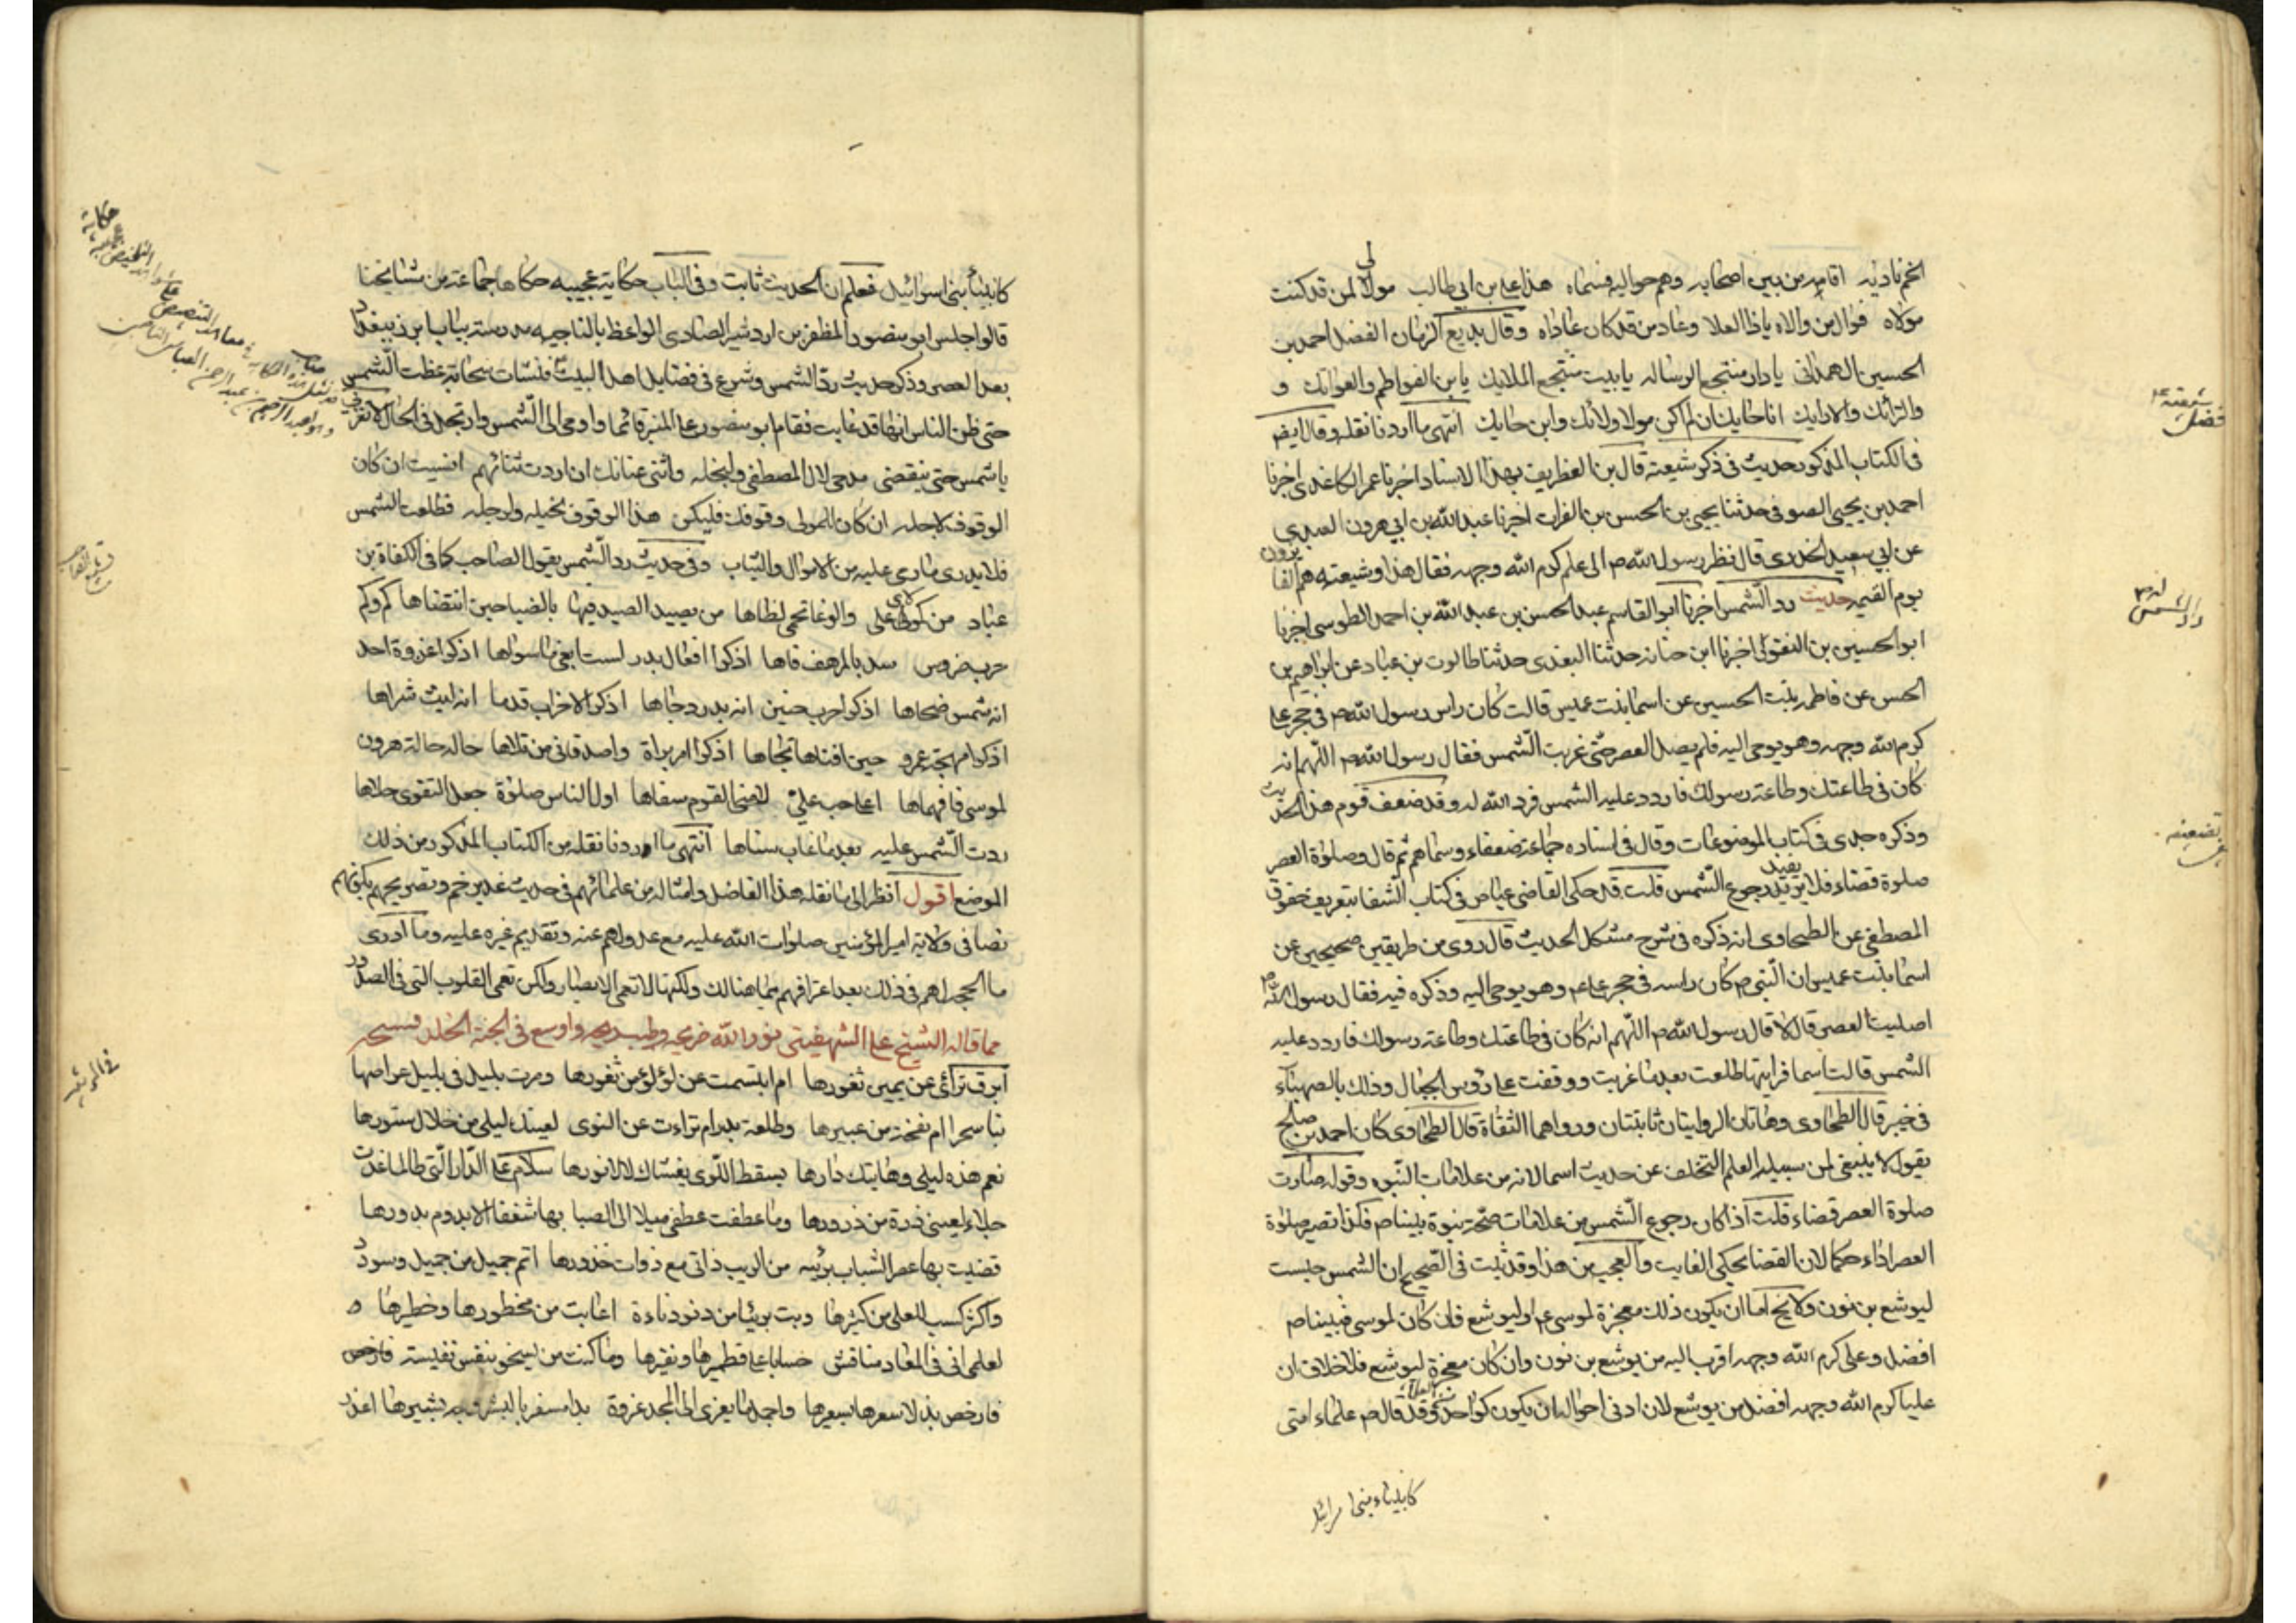 لى
الخم ناديه اقامه من بين اصحابه وهم حواليه فسماه هذا على بن ابي طالب مولا لمن قد كنت
مولاه فوال من والاه ياذا العلا وعاد من قد كان عاداه وقال بديع الزمان الفضل احمد بن
الحسين الهمدانى يا دار منتجع الرساله يا بيت منتجع الملايك يا بن الفواطم والعواتك و
والترائك والارايك انا حايك ان لم اكن مولا ولائك وابن حايك انتهى ما اردنا نقله وقال ايضا
فى الكتاب المذكور حديث فى ذكر شيعته قال بن الغطريف بهذا الاسناد اخبرنا عمر الكاغدى اخبرنا
احمد بن يحيى الصوفى حدثنا يحيى بن الحسن بن الفرات اخبرنا عبد الله بن ابي هرون العبدي
عن ابي سعيد الخدرى قال نظر رسول الله ص الى على كرم الله وجهه فقال هذا وشيعته هم الفا يزون
يوم القيمه حديث رد الشمس اخبرنا ابو القاسم عبد الحسن بن عبد الله بن احمد الطوسى اخبرنا
ابو الحسين بن النقور اخبرنا ابن حنانه حدثنا البغدى حدثنا طالوت بن عباد عن ابراهيم بن
الحسن عن فاطمه بنت الحسين عن اسما بنت عميس قالت كان راس رسول الله ص فى حجر على
كرم الله وجهه وهو يوحى اليه فلم يصل العصر حتى غربت الشمس فقال رسول الله ص اللهم انه
كان فى طاعتك وطاعة رسولك فاردد عليه الشمس فرد الله له وقد ضعف قوم هذا الحد يث
وذكره جدى فى كتاب الموضوعات وقال فى اسناده جماعة ضعفاء وسماهم ثم قال وصلوة العصر
صلوة قضاء فلا يفيد رجوع الشمس قلت قد حكى القاضى عياض فى كتاب الشفا بتعريف حقوق
المصطفى عن الطحاوى انه ذكره فى شرح مشكل الحديث قال روى من طريقين صحيحين عن
اسما بنت عميس ان النبى ص كان راسه فى حجر على ع وهو يوحى اليه وذكره فيه فقال رسول الله ص
اصليت العصر قال لا قال رسول الله ص اللهم انه كان فى طاعتك وطاعة رسولك فاردد عليه
الشمس قالت اسما فرايتها طلعت بعد ما غربت ووقفت على رؤس الجبال وذلك بالصهباء
فى خيبر قال الطحاوى وهاتان الروايتان ثابتتان ورواهما الثقاة قال الطحاوى كان احمد بن صالح
يقول لا ينبغى لمن سبيله العلم التخلف عن حديث اسما لانه من علامات النبوه وقوله صارت
صلوة العصر قضاء قلت اذا كان رجوع الشمس من علامات صحة نبوة نبينا ص فكذا تصير صلوة
العصر اداء حكما لان القضا يحكى الفايت والعجب من هذا وقد ثبت فى الصحيح ان الشمس حبست
ليوشع بن نون ولا يخ اما ان يكون ذلك معجزة لموسى ع او ليوشع فان كان لموسى فنبينا ص
افضل وعلى كرم الله وجهه اقرب اليه من يوشع بن نون وان كان معجزة ليوشع فلا خلاف ان
عليا كرم الله وجهه افضل من يوشع لان ادنى احواله ان يكون كواحد وقد قال ص علماء امتى
كانبياء بنى اسرائيل
كانبياء بنى اسرائيل فعلم ان الحديث ثابت وفى الباب حكاية عجيبه حكاها جماعة من مشايخنا
قالوا جلس ابو منصور المظفر بن اردشير العبادى الواعظ بالتاجيه مدرسة بباب ابرز ببغداد
بعد العصر وذكر حديث رد الشمس وشرع فى فضايل اهل البيت فنشات سحابة غطت الشمس
حتى ظن الناس انها قد غابت فقام ابو منصور على المنبر قائما واومى الى الشمس وارتجل فى الحال لا تغربى
يا شمس حتى ينقضى مدحى لال المصطفى ولنجله واثنى عنانك ان اردت ثنائهم انسيت ان كان
الوقوف لاجله ان كان للمولى وقوفك فليكن هذا الوقوف لخيله ولرجله فطلعت الشمس
فلا يدرى ما رمى عليه من الاموال والثياب وفى حديث رد الشمس يقول الصاحب كافى الكفاة بن
عباد من كمولاى على والوغا تحمى لظاها من يصيد الصيد فيها بالضبا حين انتضاها كم وكم
حرب ضروس سد بالمرهف فاها اذكروا افعال بدر لست ابغى ما سواها اذكروا غزوة احد
انه شمس ضحاها اذكروا حرب حنين انه بدر دجاها اذكروا الاحزاب قدما انه ليث شراها
اذكروا مهجة عمرو حين افناها تجاها اذكروا امر براة واصدقانى من تلاها حاله حالة هرون
لموسى فافهماها اعلى حب على لامنى القوم سفاها اول الناس صلوة جعل التقوى حلاها
ردت الشمس عليه بعد ما غاب سناها انتهى ما اوردنا نقله من الكتاب المذكور من ذلك
الموضع اقول انظر الى ما نقله هذا الفاضل وامثاله من علمائهم فى حديث غدير خم وتصريحهم بكونهم
نصا فى ولاية امير المؤمنين صلوات الله عليه مع عدولهم عنه وتقديم غيره عليه وما ادرى
ما الحجة لهم فى ذلك بعد اعترافهم بما هنالك ولكنها لا تعمى الابصار ولكن تعمى القلوب التى فى الصدور
مما قاله الشيخ على الشهيفينى نور الله ضريحه وطيب ريحه واوسع فى الجنة الخلد فسيحه
ابرق ترائى عن يمين ثغورها ام ابتسمت عن لؤلؤ من ثغورها ومرت بليل فى بليل عراصها
بنا سحرا ام نفحة من عبيرها وطلعة بدر ام تراءت عن النوى لعينك ليلى من خلال ستورها
نعم هذه ليلى وهاتيك دارها بسقط اللوى يغشاك لالا نورها سلام على الدار التى طالما غدت
جلاء لعينى ذرة من ذرورها وما عطفت عطفى ميلا الى الصبا بها شغفا الا بدوم بدورها
قضيت بها عصر الشباب بريئه من الريب ذاتى مع ذوات خدورها اتم جميل من جميل وسودد
واكثر كسب للعلى من كثيرها وبت بريئا من دنو دناءة اعابت من محظورها وخطيرها
لعلمى انى فى المعاد مناقش حسابا على قطميرها ونقيرها وما كنت من يسخو بنفس نفيسة
فارخص بذلا سعرها بسعيرها واجمل ما يعزى الى المجد عزوة بدا مسفرا بالبشر وجه بشيرها
حكاية